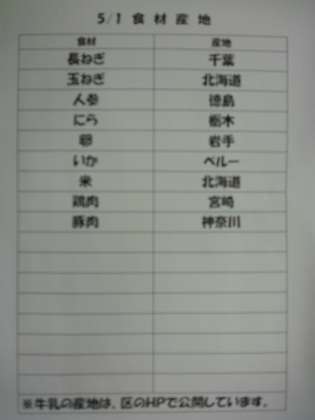 5/1 食材産地
食材 産地
長ねぎ 千葉
玉ねぎ 北海道
人参 徳島
にら 栃木
卵 岩手
いか ペルー
米 北海道
鶏肉 宮崎
豚肉 神奈川
※牛乳の産地は、区のHPで公開しています。